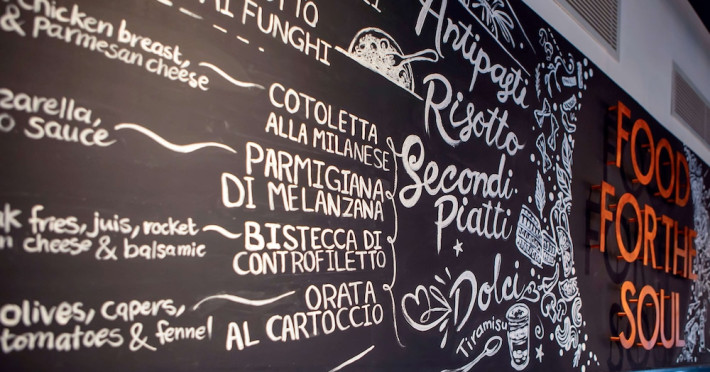 FUNGHI
Chicken breast,
& Parmesan cheese
COTOLETTA
ALLA MILANESE
sauce
PARMIGIANA
DI MELANZANA
fries, juis, rocket
cheese & balsamic
BISTECCA DI
CONTROFILETTO
olives, capers,
tomatoes & fennel
ORATA
AL CARTOCCIO
Antipasti
Risotto
Secondi
Piatti
Dolci
Tiramisu
FOOD
FOR THE
SOUL